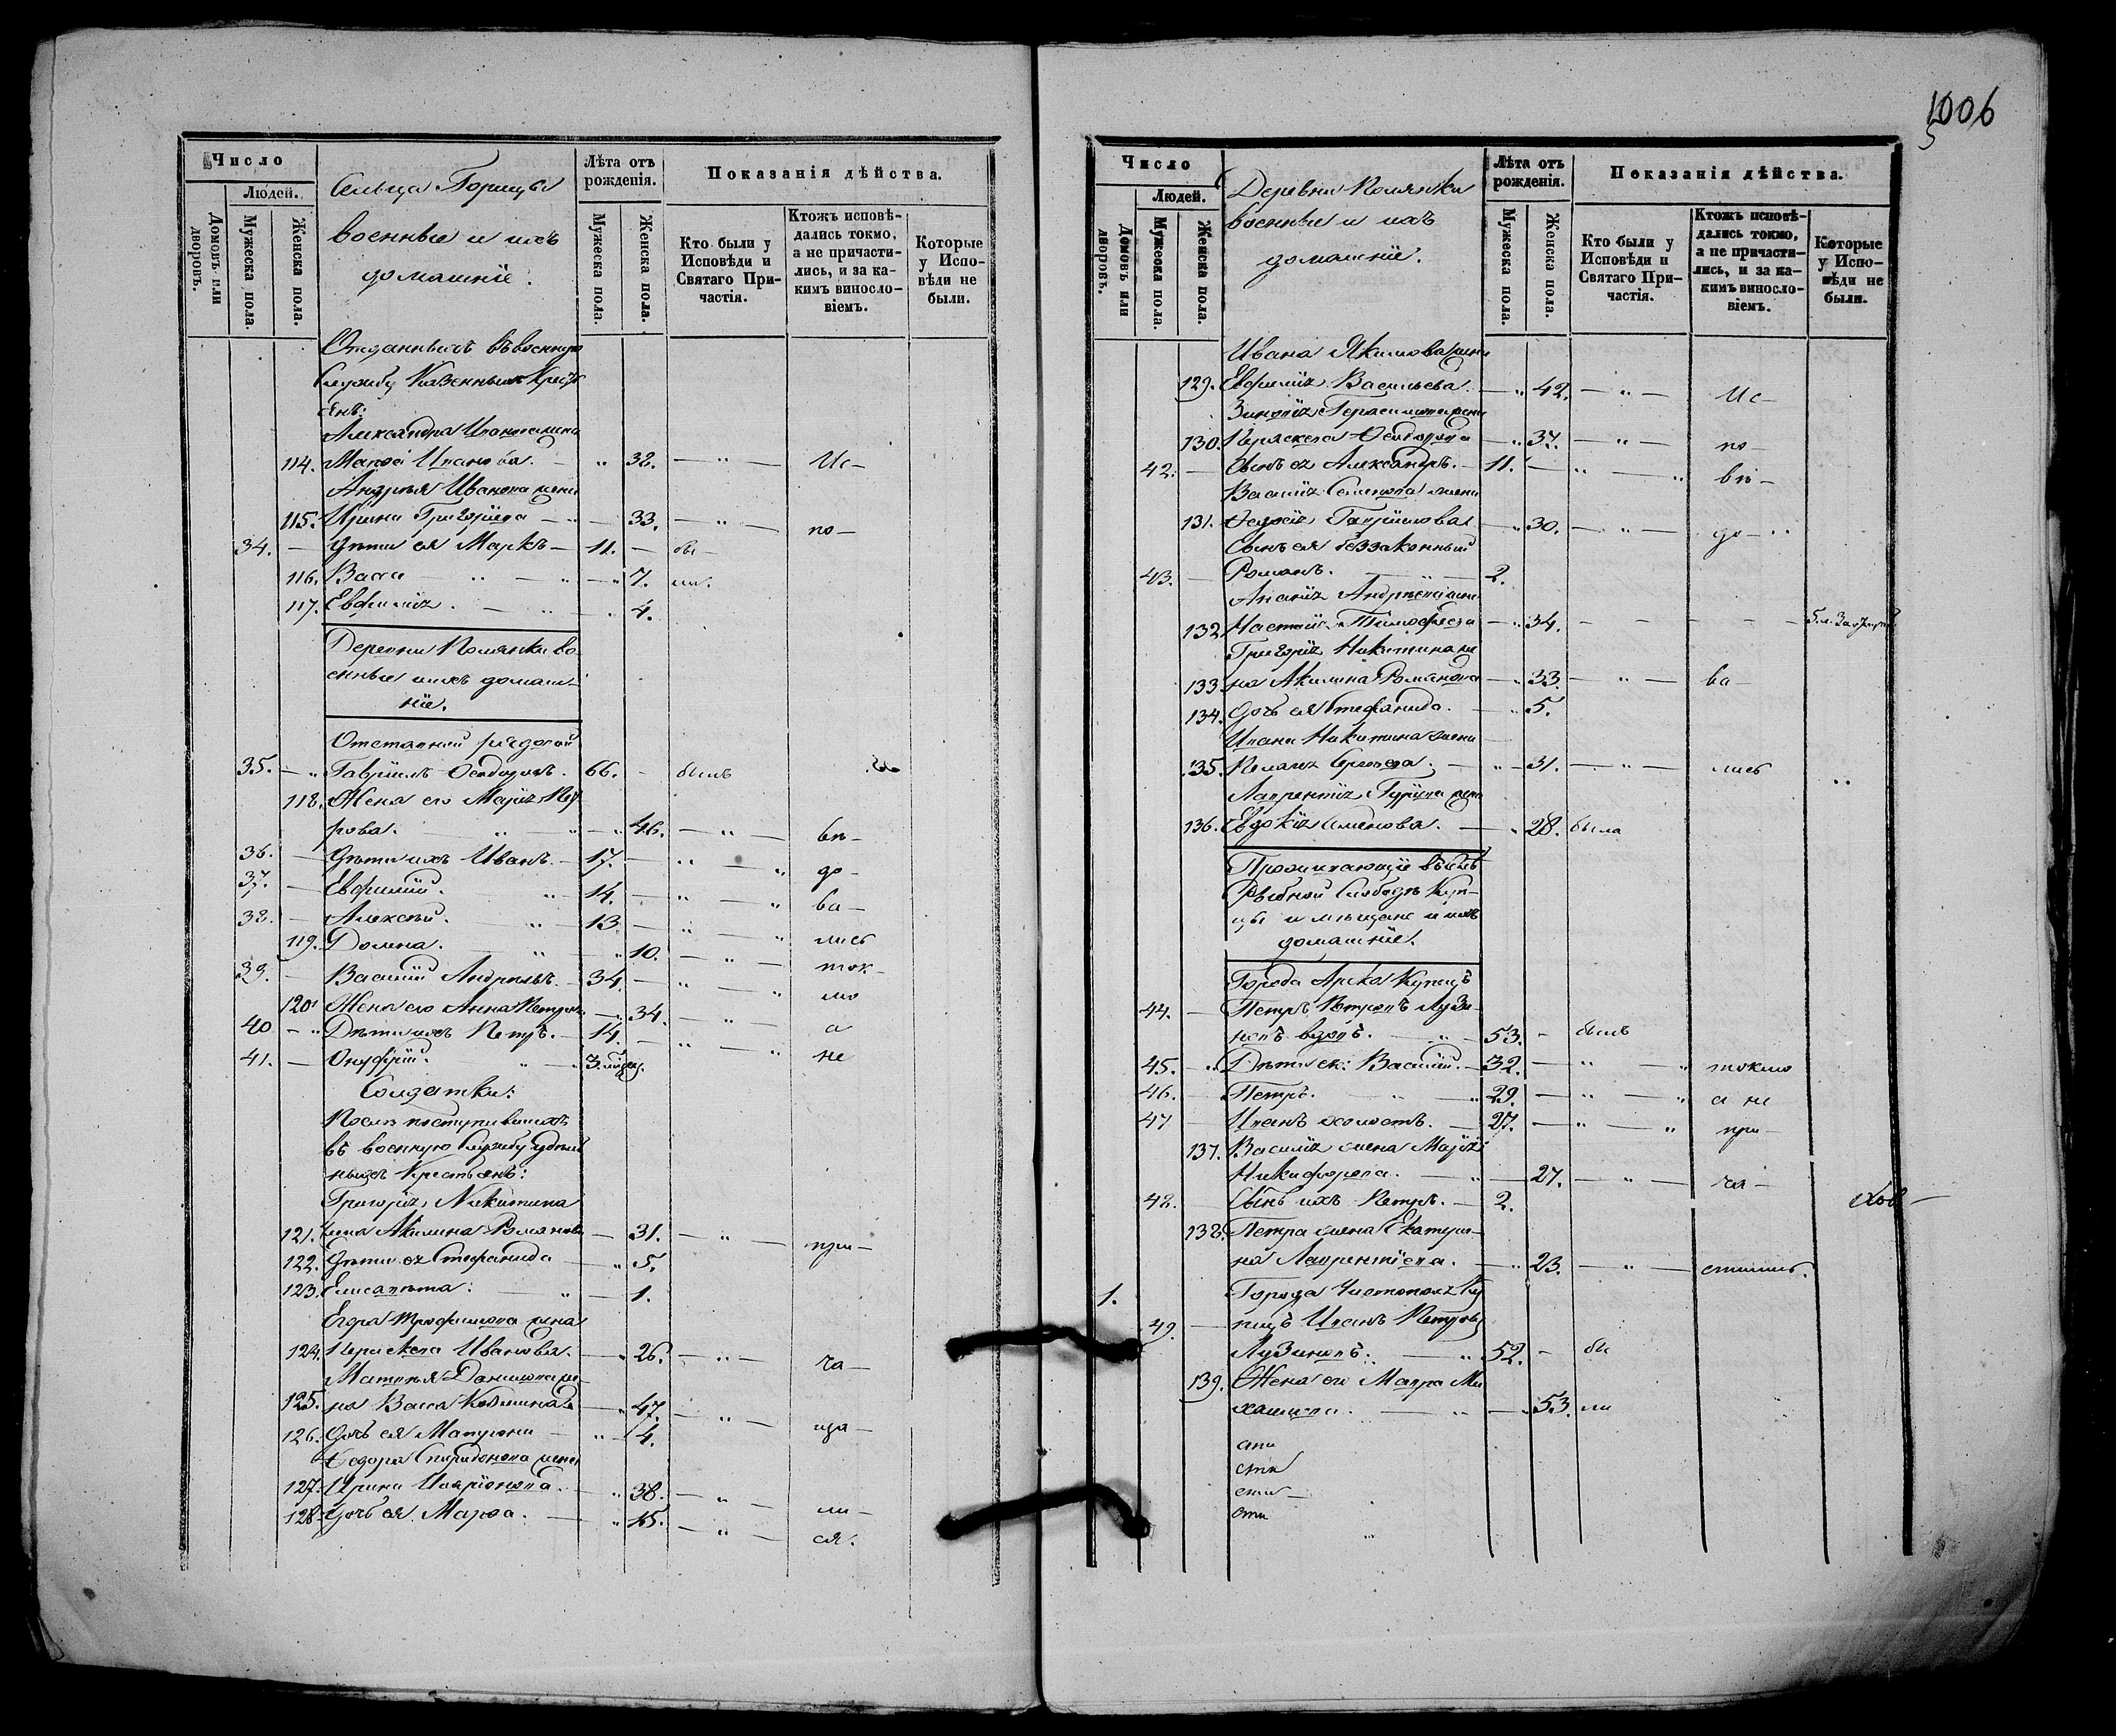 1006
5
Число
Людей.
Домовъ или дворовъ.
Мужеска пола.
Женска пола.
Сельца Горищъ
военные и ихъ
домашніе.
Лѣта отъ рожденія.
Мужеска пола.
Женска пола.
Показанія дѣйства.
Кто были у Исповѣди и Святаго Причастія.
Ктожъ исповѣдались токмо, а не причастились, и за какимъ винословіемъ.
Которые у Исповѣди не были.
Отданныхъ въ военную
службу Казенныхъ Кресть
янъ:
Александра Иванова жена
114. Марѳа Иванова. — " 32. — " — Ис—
Андрея Иванова жена
115. Ирина Григорьева — 33. — " — по—
34. — Дѣти ея Маркъ — 11. — бы—
116. Васса — " 7. ли.
117. Евфимія. — " 4.
Деревни Полянки во
енные ихъ домаш—
ніе.
Отставной рядовой
35. — " Гавріилъ Ѳеодоровъ. 66. - былъ
118. Жена его Марія Пет
рова. " — " 46. — " — вѣ—
36. — Дѣти ихъ Иванъ. — 17. — " " до—
37. — Евфимій. " 14. — " " ва—
38. — Алексѣй. " 13. — " " лись
119. Домна. " 10. — " — ток—
39. — Василій Андреевъ. — 34. — " " мо
120. Жена его Анна Петров. — 34. — " — а
40 — " Дѣти ихъ Петръ. — 14. — " " не
41. — Онуфрій. " — " 3.
Солдатки:
Послѣ поступившихъ
въ военную службу удѣль
ныхъ Крестьянъ:
Григорія Никитина
121. жена Акилина Романова — 31. — " — при—
122. Дѣти ея Стефанида — " 5.
123. Елисавета: " — 1.
Егора Трофимова жена
124. Параскева Иванова. — " 26. — " — ча—
Матвѣя Данилова же—
125. на Васса Козмина — " 47. — " —
126. Дочь ея Матрона — " 4.
Ѳедора Спиридонова жена
127. Ирина Иларіонова. — " 38. — " — ли—
128. Дочь ея Марѳа. — " 15. — " — ся.
Число
Людей.
Домовъ или дворовъ.
Мужеска пола.
Женска пола.
Деревни Полянки
военные и ихъ
домашніе.
Лѣта отъ рожденія.
Мужеска пола.
Женска пола.
Показанія дѣйства.
Кто были у Исповѣди и Святаго Причастія.
Ктожъ исповѣдались токмо, а не причастились, и за какимъ винословіемъ.
Которые у Исповѣди не были.
Ивана Якимова жена
129. Евфимія Васильева — " 42. — " — Ис—
Зиновія Герасимова жена
130. Параскева Ѳеодорова — " 37. — " — по—
42. — Сынъ ея Александръ. — 11. — " " вѣ—
Василія Семенова жена
131. Гаврилова — " 30. — " — до—
Сынъ ея беззаконный
43. — Романъ. — 2.
Андреева жена
132 Тимофеева — " 34. — — — —
Григорія Никитина же
133 на Акилина Романова — " 33. — " — ва—
134. Дочь ея Стефанида. — " 5.
Ивана Никитина жена
135. Сергеева. — " — 31. — " — лись
Лаврентія Гурьева жена
136. Евдокія Семенова. — " 28. была
Проживающіе въ селѣ
Рыбной Слободѣ Куп—
цы и мѣщане и ихъ
домашніе.
Города Арска Купецъ
44. — Петръ Петровъ Лузи
новъ вдовъ. — " 53. - былъ
45. — " Дѣти его: Василій. — 32. — " " токмо
46. — Петръ. " 29. — " — " а не
47 — Иванъ холостъ. — 27. — " — " при—
137. Василія жена Марія
Никифорова. — " — 27. — " — ча—
48. — Сынъ ихъ Петръ. — 2.
138. Петра жена Екатери—
на Лаврентіева. — " 23. — " — стились.
1. Города Чистополя Ку
49. — пецъ Иванъ Петровъ
Лузиновъ. — " 52. - бы
139. Жена его Мавра Ми
хайлова. — " — 53. ли